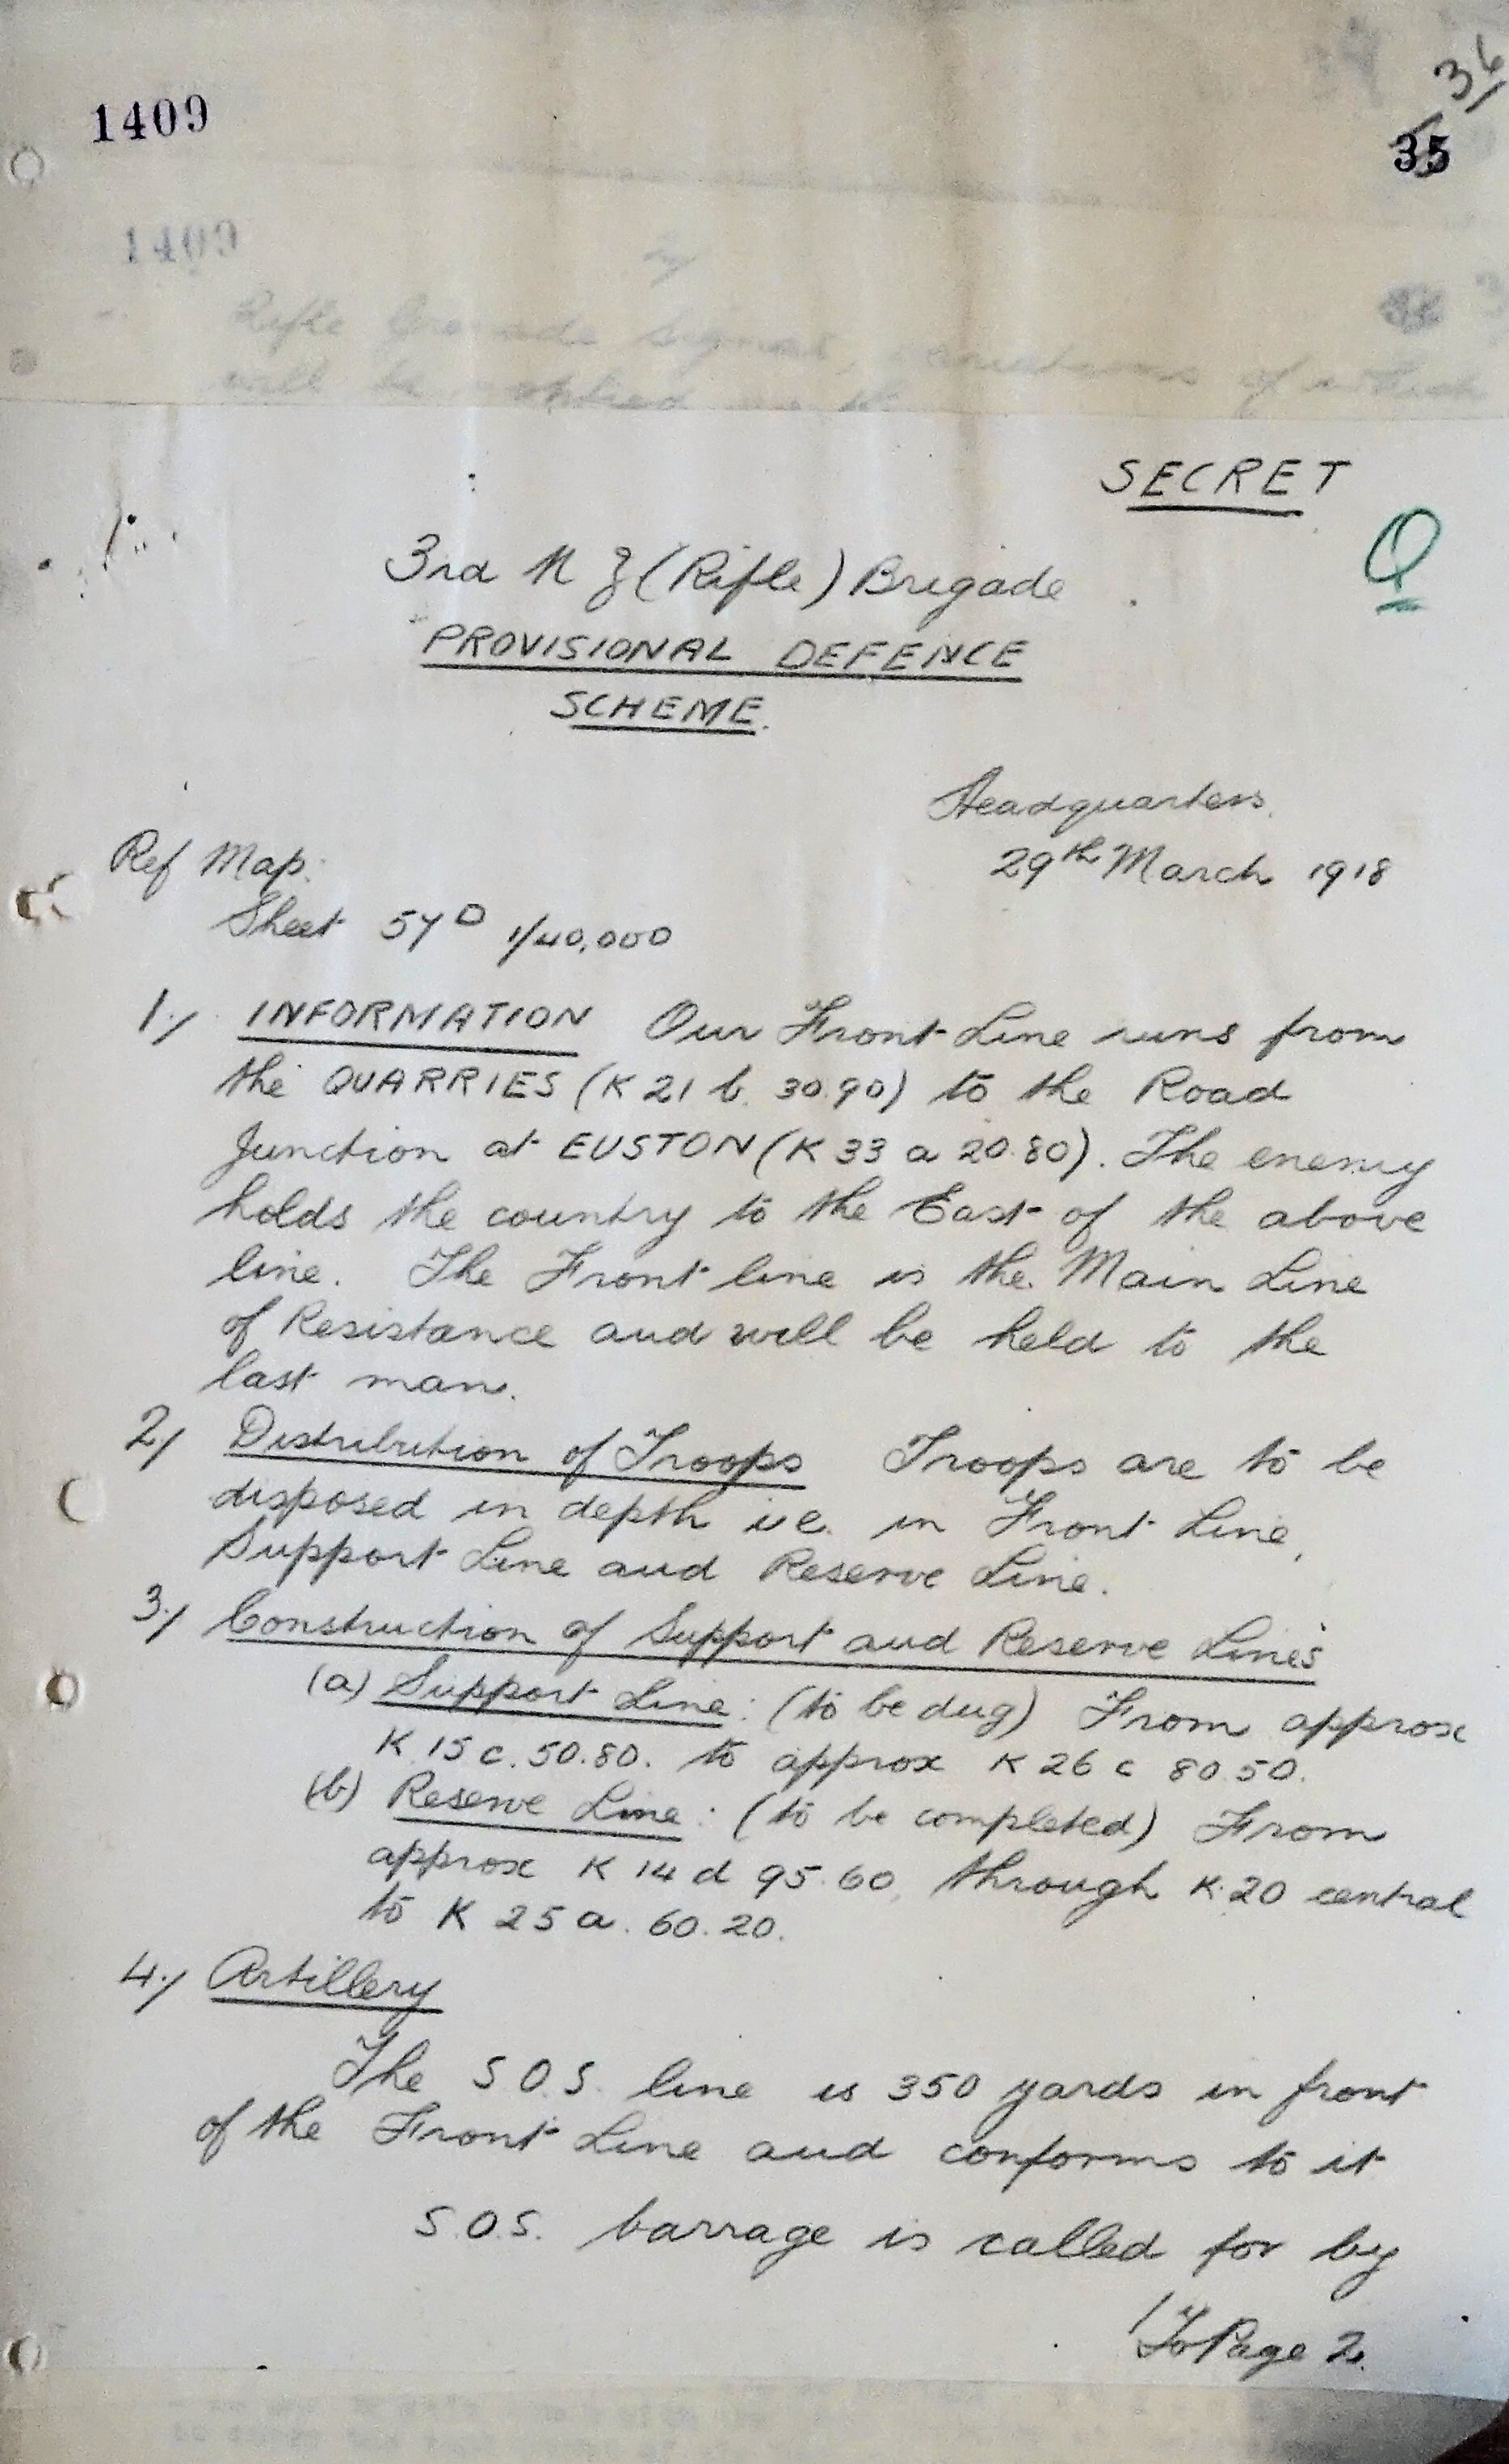 1409
36
35
1409
Rifle Grenade Signal, of which
will be notified
SECRET
Q
3rd N Z (Rifle) Brigade
PROVISIONAL DEFENCE
SCHEME.
Headquarters.
29th March 1918
Ref Map.
Sheet 57D 1/40,000
1./ INFORMATION Our Front Line runs from
the QUARRIES (K 21 b. 30.90) to the Road
Junction at EUSTON (K 33 a 20.80). The enemy
holds the country to the East of the above
line. The Front line is the Main Line
of Resistance and will be held to the
last man.
2./ Distribution of Troops Troops are to be
disposed in depth i.e. in Front Line,
Support Line and Reserve Line.
3./ Construction of Support and Reserve Lines
(a) Support Line: (to be dug) From approx
K 15 c. 50.80. to approx K 26 c 80.50.
(b) Reserve Line: (to be completed) From
approx K 14 d 95.60, through K.20 central
to K 25 a. 60.20.
4./ Artillery
The S.O.S. line is 350 yards in front
of the Front Line and conforms to it
S.O.S. barrage is called for by
/To Page 2.